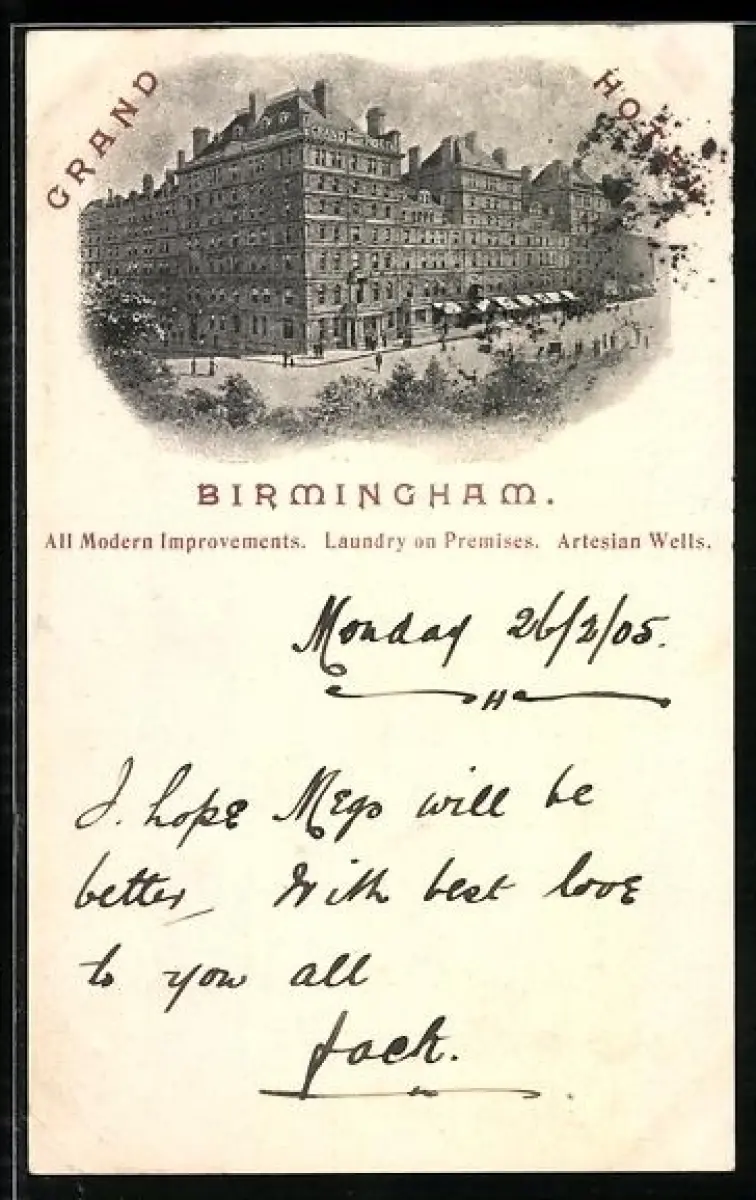 GRAND HOTEL
GRAND HOTEL
BIRMINGHAM.
All Modern Improvements. Laundry on Premises. Artesian Wells.
Monday 26/2/05.
I. hope Megs will be
better With best love
to you all
Jack.